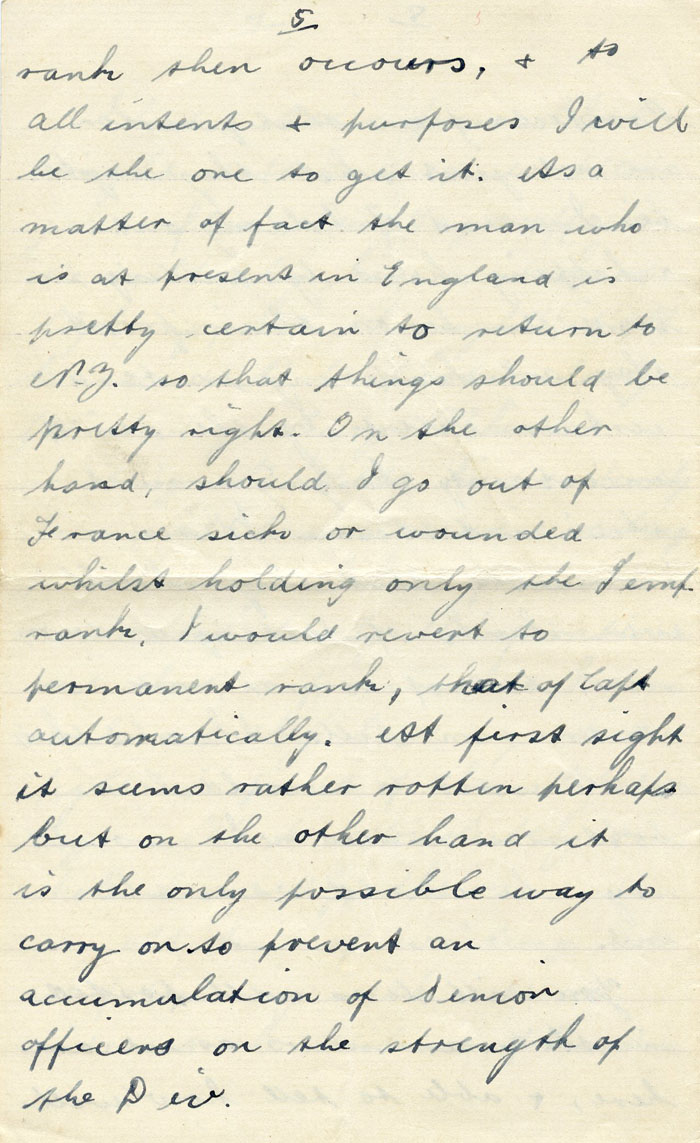 5
rank then occours, & to
all intents & purposes I will
be the one to get it. As a
matter of fact the man who
is at present in England is
pretty certain to return to
N.Z. so that things should be
pretty right. On the other
hand, should I go out of
France sick or wounded
whilst holding only the Temp
rank, I would revert to
permanent rank, that of Capt
automatically. At first sight
it seems rather rotten perhaps
but on the other hand it
is the only possible way to
carry on so prevent an
accumulation of Senior
officers on the strength of
the Div.